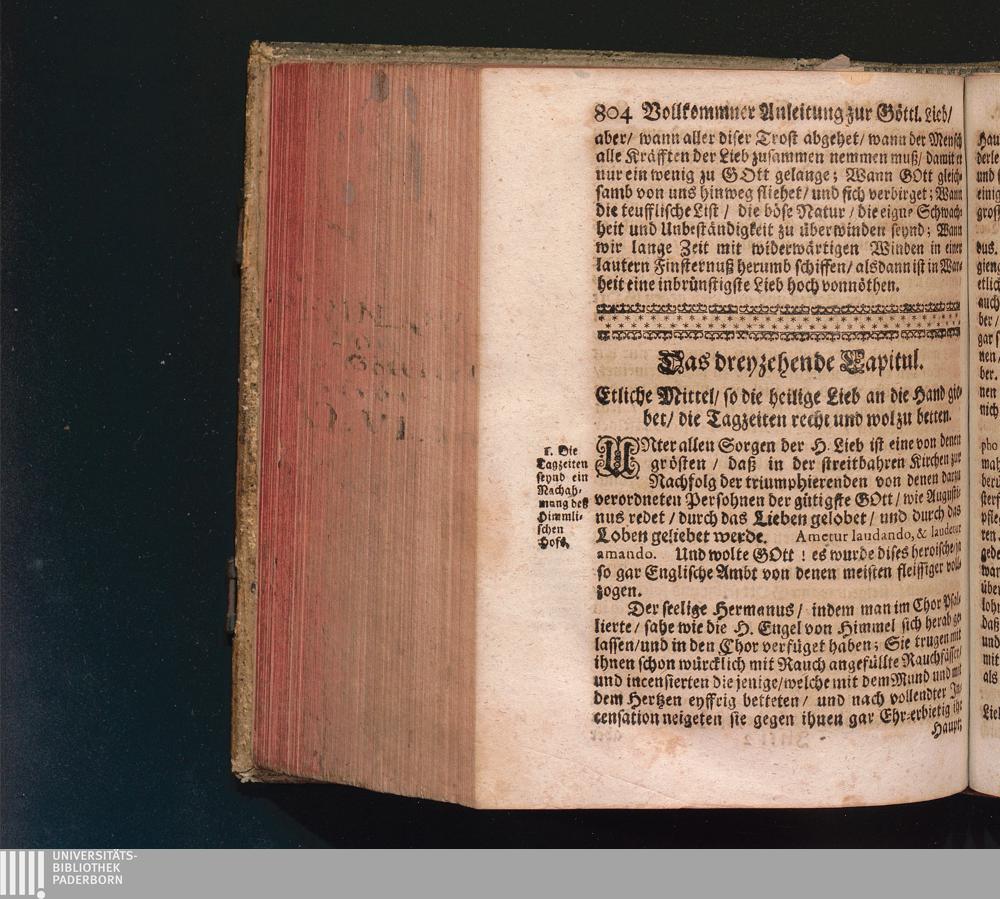 804 Vollkommner Anleitung zur Göttl. Lieb/
aber/ wann aller diser Trost abgehet/ wann der Mensch
alle Kräfften der Lieb zusammen nemmen muß/ damit er
nur ein wenig zu GOtt gelange; Wann GOtt gleich-
samb von uns hinweg fliehet/ und sich verbirget; Wann
die teufflische List / die böse Natur / die eigne Schwach-
heit und Unbeständigkeit zu überwinden seynd; Wann
wir lange Zeit mit widerwärtigen Winden in einer
lautern Finsternuß herumb schiffen/ alsdann ist in War-
heit eine inbrünstigste Lieb hoch vonnöthen.
Das dreyzehende Capitul.
Etliche Mittel/ so die heilige Lieb an die Hand gie-
bet/ die Tagzeiten recht und wol zu betten.
1. Die
Tagzeiten
seynd ein
Nachah-
mung deß
Himmli-
schen
Hofs.
UNter allen Sorgen der H. Lieb ist eine von denen
grösten / daß in der streitbahren Kirchen zur
Nachfolg der triumphierenden von denen darzu
verordneten Persohnen der gütigste GOtt/ wie Augusti-
nus redet / durch das Lieben gelobet / und durch das
Loben geliebet werde. Ametur laudando, & laudetur
amando. Und wolte GOtt ! es wurde dises heroische/ja
so gar Englische Ambt von denen meisten fleissiger voll-
zogen.
Der seelige Hermanus/ indem man im Chor Psal-
lierte/ sahe wie die H. Engel von Himmel sich herab ge-
lassen/und in den Chor verfüget haben; Sie trugen mit
ihnen schon würcklich mit Rauch angefüllte Rauchfässer/
und incensierten die jenige/welche mit dem Mund und mit
dem Hertzen eyffrig betteten/ und nach vollendter In-
censation neigeten sie gegen ihnen gar Ehr-erbietig ihr
Haupt;
UNIVERSITÄTS-
BIBLIOTHEK
PADERBORN